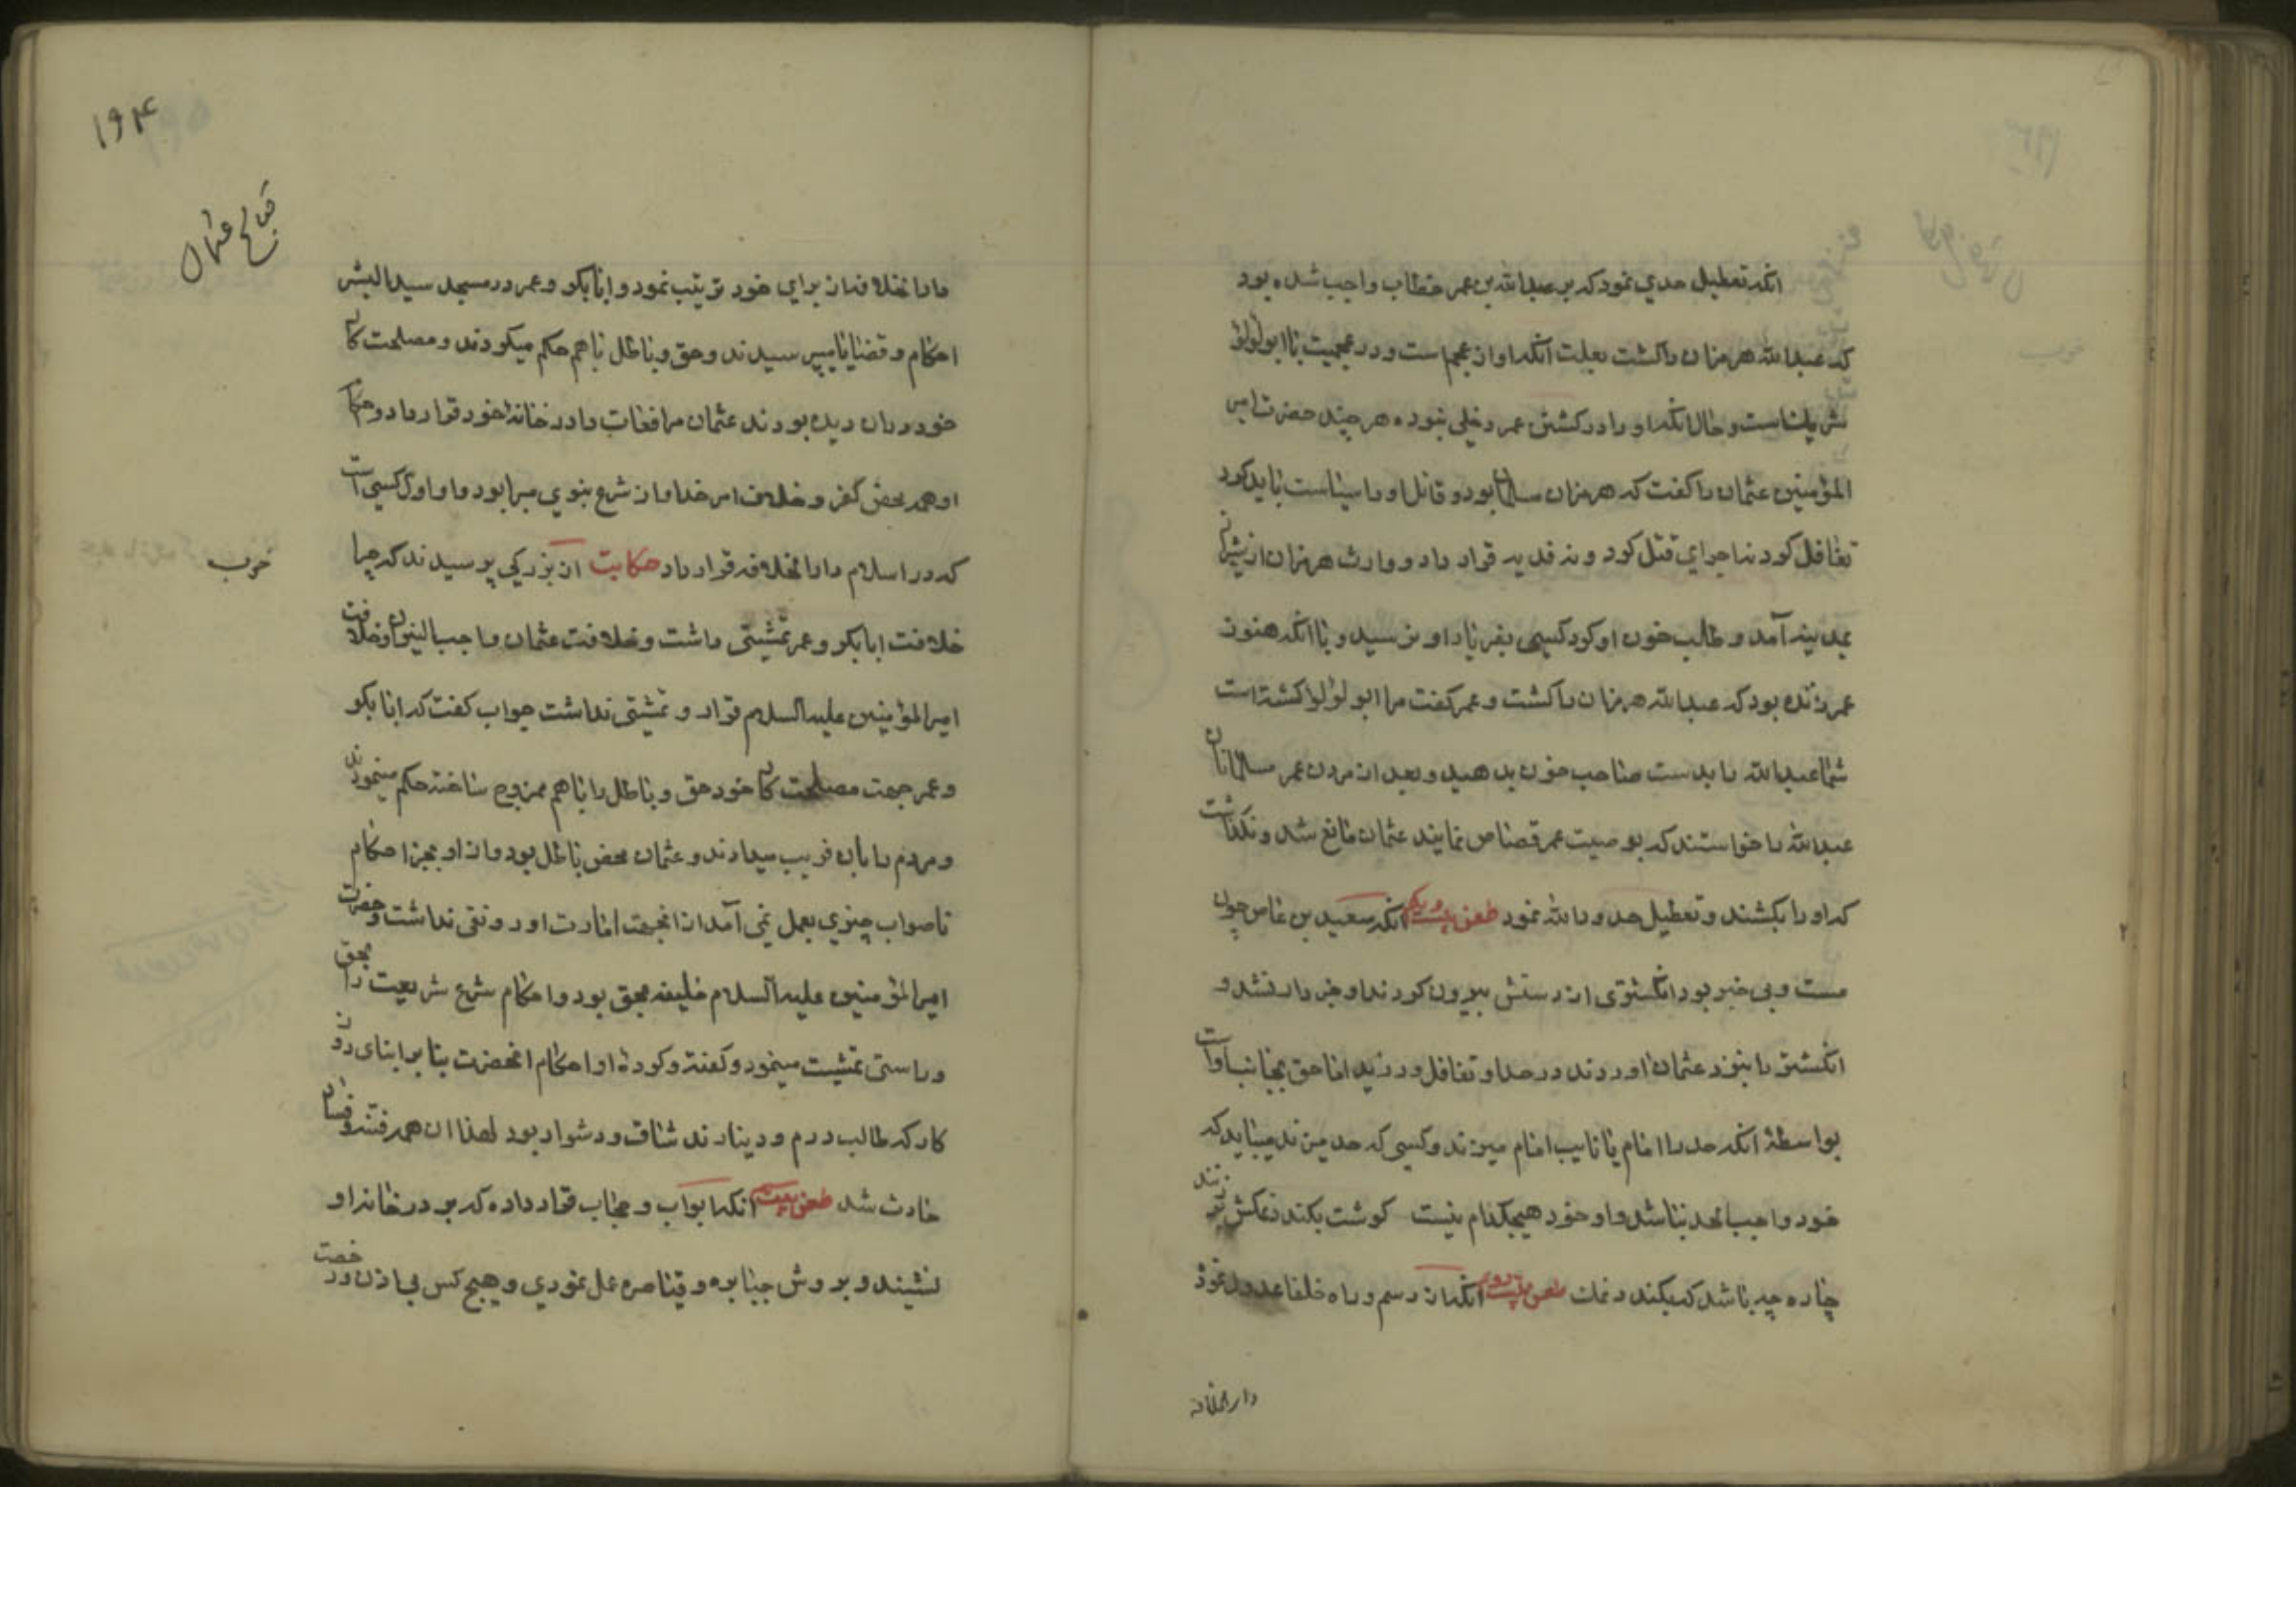 انکه تعطیل حدی نمود که بر عبدالله بن عمر خطاب واجب شده بود
که عبدالله هرمزان را کشت بعلت آنکه او از عجم است و در عجمیت با ابولؤلؤ
شریک است و حال انکه او را در کشتن عمر دخلی نبوده هر چند حضرت امیر
المؤمنین عثمان را کفت که هرمزان مسلمان بود و قاتل او را سیاست باید کرد
تغافل کرد نه اجرای قتل کرد و نه فدیه قرار داد و وارث هرمزان از
بمدینه آمد و طالب خون او کرد کسی بفریاد او نرسید و با انکه هنوز
عمر زنده بود که عبدالله هرمزان را کشت و عمر کفت مرا ابولؤلؤ کشته است
شما عبدالله را بدست صاحب خون بدهید و بعد از مردن عمر مسلمانان
عبدالله را خواستند که بوصیت عمر قصاص نمایند عثمان مانع شد و نکذاشت
که او را بکشند و تعطیل حدود الله نمود طعن بیست و یکم انکه سعید بن عاص چون
مست و بی خبر بود انکشتری از دستش بیرون کردند او خبردار نشد و
انکشتر را بنزد عثمان اوردند در حد او تغافل ورزید اما حق بجانب او است
بواسطهٔ انکه حد را امام یا نایب امام میزند و کسی که حد میزند میباید که
خود واجب الحد نباشد و او خود هیچکدام نیست کوشت بکندد نمکش زنند
چاره چه باشد که بکندد نمک طعن بیست دویم انکه از رسم و راه خلفا عدول نموده
دار الخلافه
۱۹۴
قبایح عثمان
دار الخلافه از برای خود ترتیب نمود و ابابکر و عمر در مسجد سید البشر
احکام و قضایا میپرسیدند و حق و باطل با هم حکم میکردند و مصلحت کار
خود در ان دیده بودند عثمان مرافعات را در خانهٔ خود قرار داد و احکام
او همه محض کفر و خلاف امر خدا و از شرع نبوی مبرا بود و او اول کسی است
که در اسلام دار الخلافه قرار داد حکایت از بزرکی پرسیدند که چرا
خوب
خلافت ابابکر و عمر تمشیتی داشت و خلافت عثمان و خلافت
امیر المؤمنین علیه السلام قرار و تمشیتی نداشت جواب کفت که ابابکر
و عمر جهت مصلحت کار خود حق و باطل را با هم ممزوج ساخته حکم مینمودند
و مردم را بان فریب میدادند و عثمان محض باطل بود و از او بجز احکام
ناصواب چیزی بعمل نمی آمد از انجهت امارت او رونقی نداشت و حضرت
امیر المؤمنین علیه السلام خلیفه بحق بود و احکام شرع شریعت را بحق
و راستی تمشیت مینمود و کفته و کردهٔ او احکام انحضرت بنابر ابنای
کار که طالب درم و دینارند شاق و دشوار بود لهذا ان همه فتنه و فساد
حادث شد طعن بیست سیم انکه ابواب و حجاب قرار داده که بر در خانه او
نشیند و بروش جبابره و قیاصره عمل نمودی و هیچ کس بی اذن و رخصت